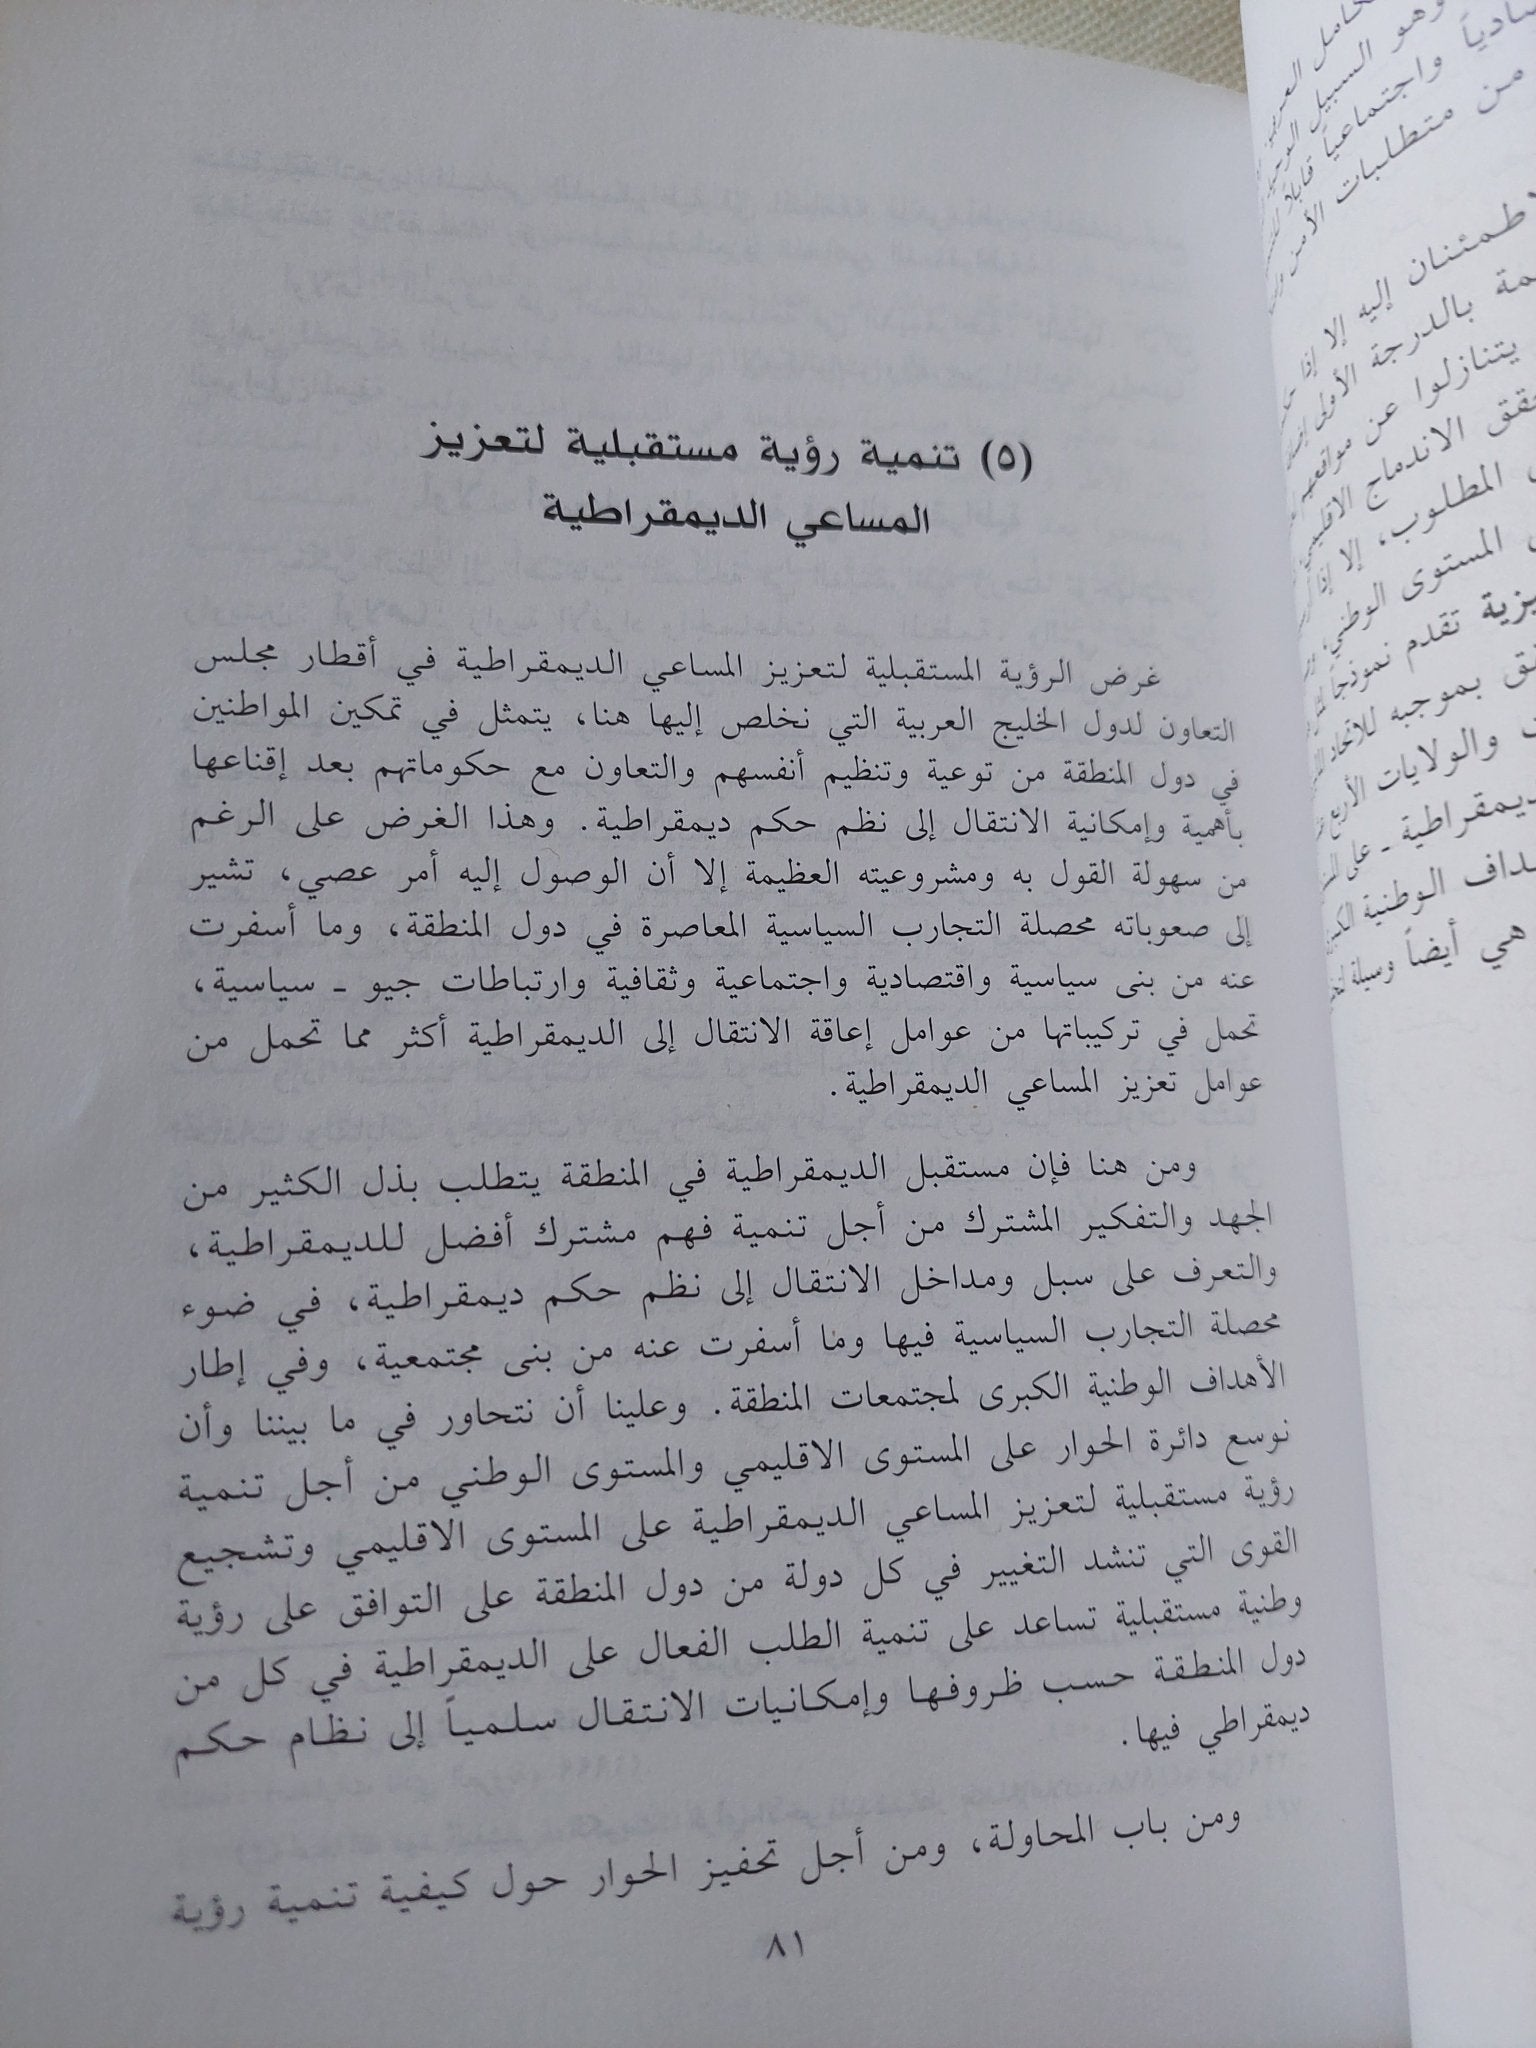 (٥) تنمية رؤية مستقبلية لتعزيز
المساعي الديمقراطية
غرض الرؤية المستقبلية لتعزيز المساعي الديمقراطية في أقطار مجلس
التعاون لدول الخليج العربية التي نخلص إليها هنا، يتمثل في تمكين المواطنين
في دول المنطقة من توعية وتنظيم أنفسهم والتعاون مع حكوماتهم بعد إقناعها
بأهمية وإمكانية الانتقال إلى نظم حكم ديمقراطية. وهذا الغرض على الرغم
من سهولة القول به ومشروعيته العظيمة إلا أن الوصول إليه أمر عصي، تشير
إلى صعوباته محصلة التجارب السياسية المعاصرة في دول المنطقة، وما أسفرت
عنه من بنى سياسية واقتصادية واجتماعية وثقافية وارتباطات جيو ـ سياسية،
تحمل في تركيباتها من عوامل إعاقة الانتقال إلى الديمقراطية أكثر مما تحمل من
عوامل تعزيز المساعي الديمقراطية.
ومن هنا فإن مستقبل الديمقراطية في المنطقة يتطلب بذل الكثير من
الجهد والتفكير المشترك من أجل تنمية فهم مشترك أفضل للديمقراطية،
والتعرف على سبل ومداخل الانتقال إلى نظم حكم ديمقراطية، في ضوء
محصلة التجارب السياسية فيها وما أسفرت عنه من بنى مجتمعية، وفي إطار
الأهداف الوطنية الكبرى لمجتمعات المنطقة. وعلينا أن نتحاور في ما بيننا وأن
نوسع دائرة الحوار على المستوى الاقليمي والمستوى الوطني من أجل تنمية
رؤية مستقبلية لتعزيز المساعي الديمقراطية على المستوى الاقليمي وتشجيع
القوى التي تنشد التغيير في كل دولة من دول المنطقة على التوافق على رؤية
وطنية مستقبلية تساعد على تنمية الطلب الفعال على الديمقراطية في كل من
دول المنطقة حسب ظروفها وإمكانيات الانتقال سلمياً إلى نظام حكم
ديمقراطي فيها.
ومن باب المحاولة، ومن أجل تحفيز الحوار حول كيفية تنمية رؤية
٨١
وهو السبيل
واجتماعياً قابلاً
من متطلبات الأمن
إليه إلا إذا
بالدرجة الأولى
يتنازلوا عن مواقعهم
الاندماج
المطلوب، إلا إذا
المستوى الوطني،
تقدم نموذجاً
بموجبه للاتحاد
والولايات
ـ على
الوطنية
هي أيضاً وسيلة